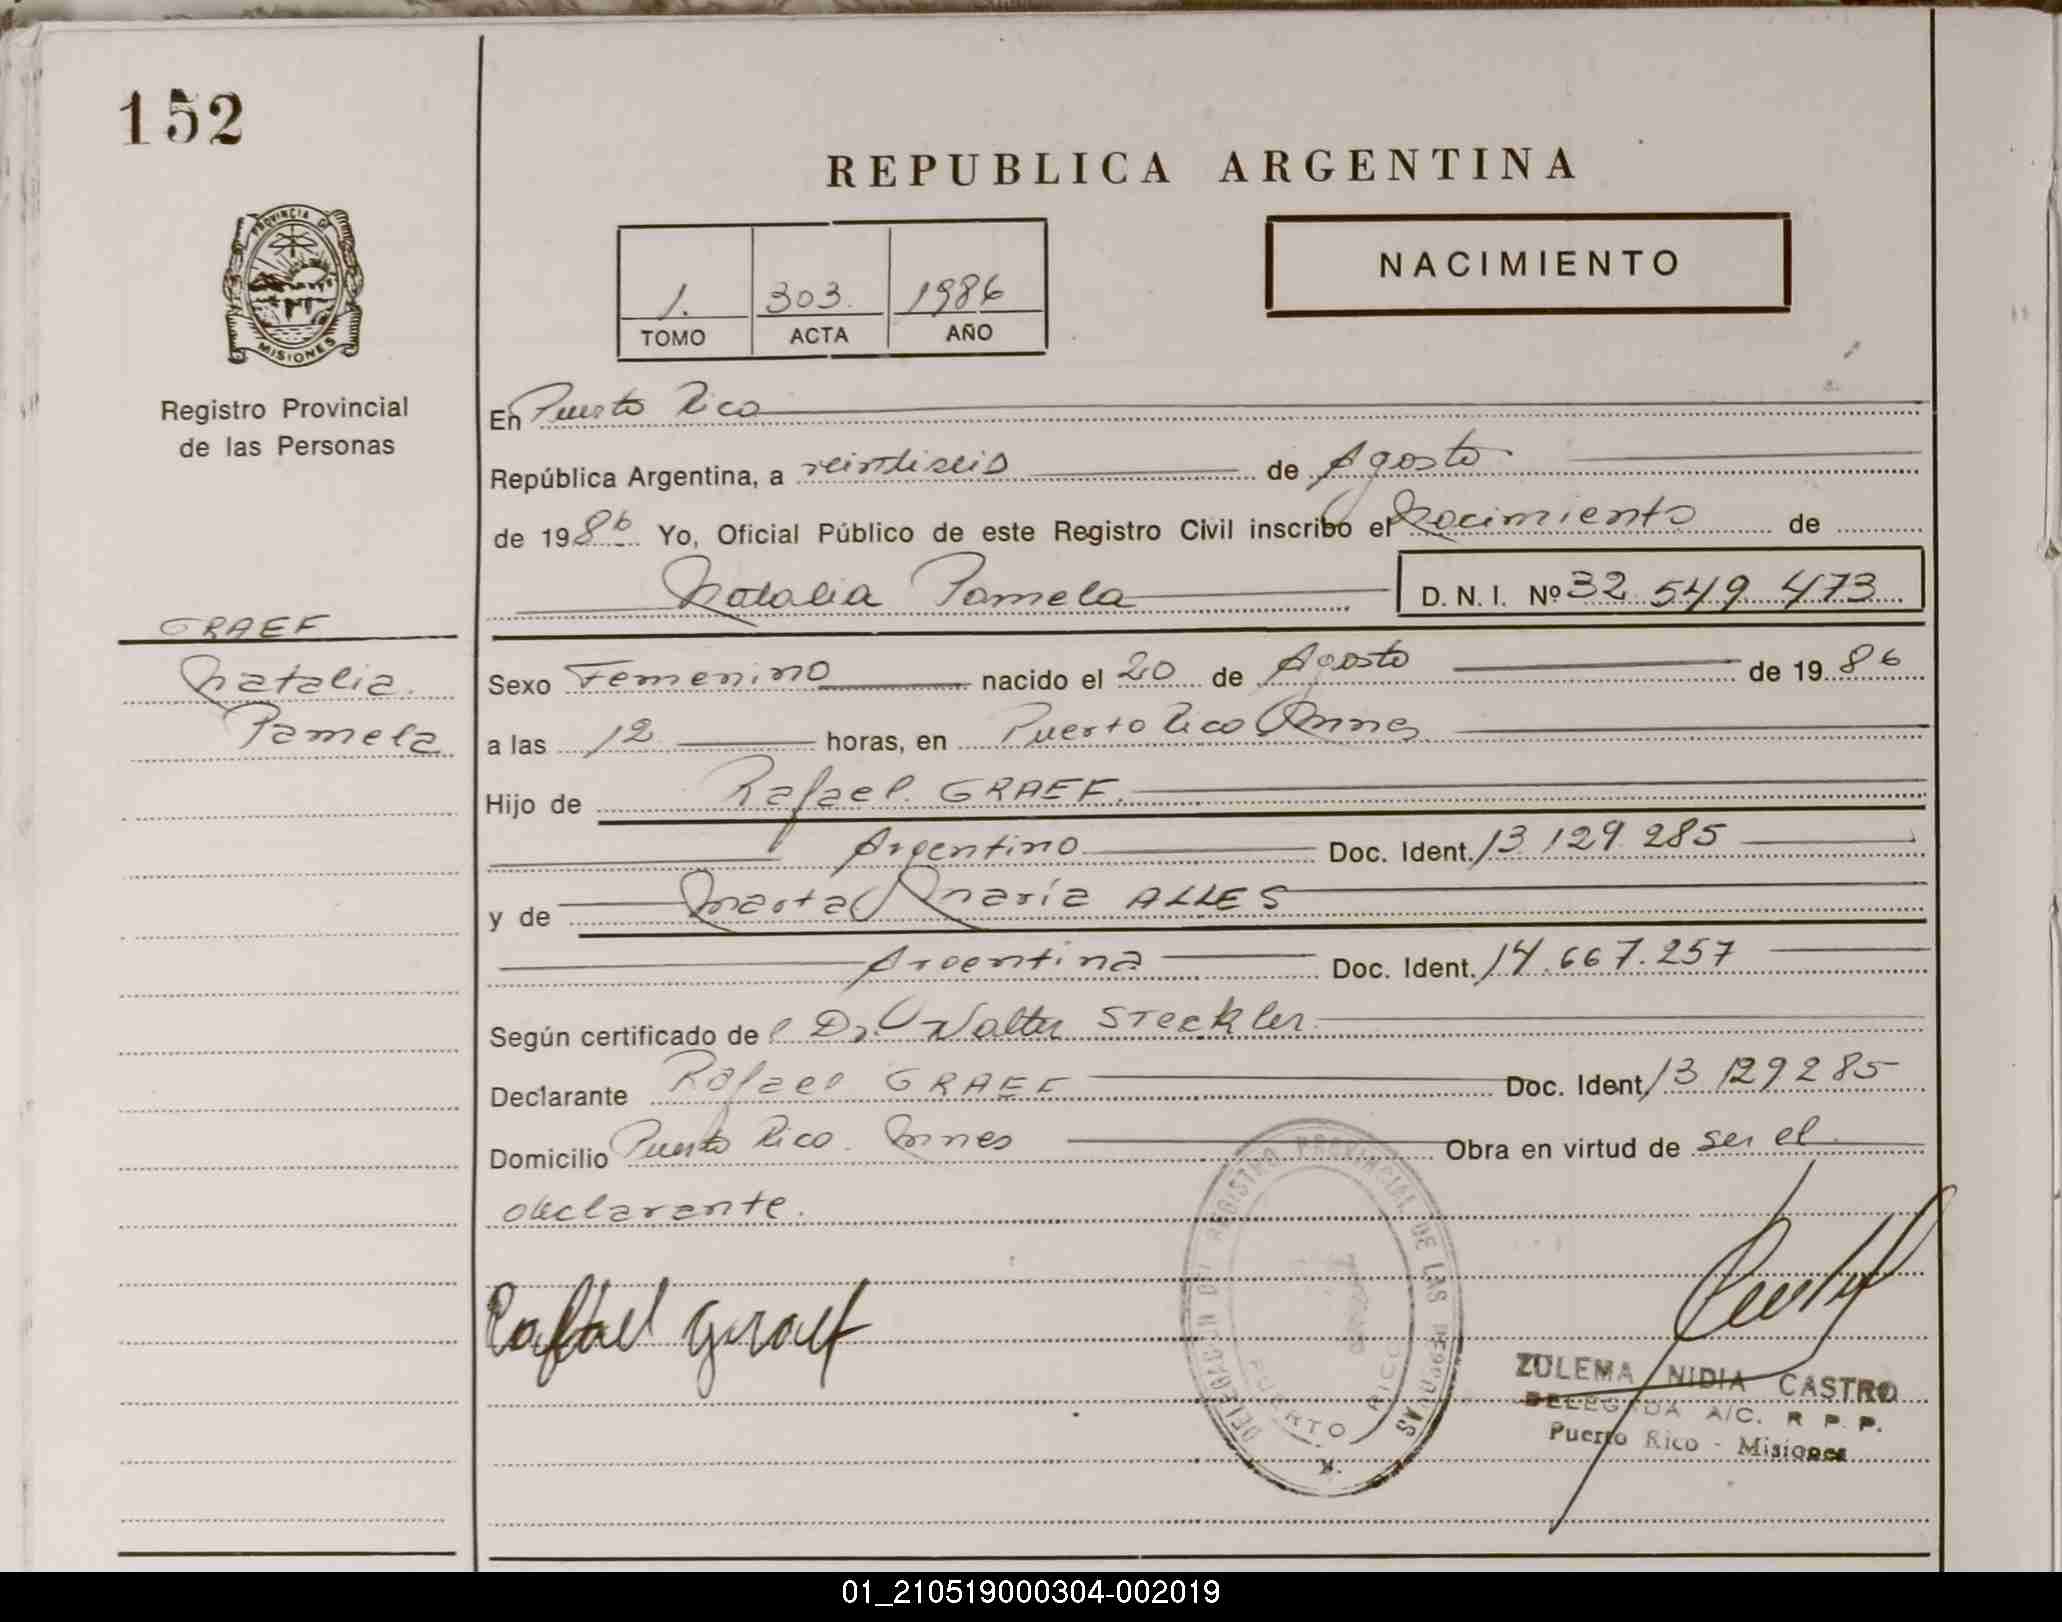 152
REPUBLICA ARGENTINA
PROVINCIA DE
MISIONES
Registro Provincial
de las Personas
1. 303. 1986
TOMO ACTA AÑO
NACIMIENTO
En Puerto Rico
República Argentina, a veintiseis de Agosto
de 1986 Yo, Oficial Público de este Registro Civil inscribo el Nacimiento de
Natalia Pamela D. N. I. Nº 32 549 473
GRAEF
Natalia
Pamela
Sexo Femenino nacido el 20 de Agosto de 1986
a las 12 horas, en Puerto Rico Mnes
Hijo de Rafael GRAEF.
Argentino Doc. Ident. 13 129 285
y de Marta María ALLES
Argentina Doc. Ident. 14.667.257
Según certificado del Dr. Walter Steckler
Declarante Rafael GRAEF Doc. Ident. 13 129285
Domicilio Puerto Rico. Mnes Obra en virtud de ser el
declarante.
Rafael Graef
DELEGACION DEL REGISTRO PROVINCIAL DE LAS PERSONAS
PUERTO RICO
ZULEMA NIDIA CASTRO
DELEGADA A/C. R P. P.
Puerto Rico - Misiones
01_210519000304-002019